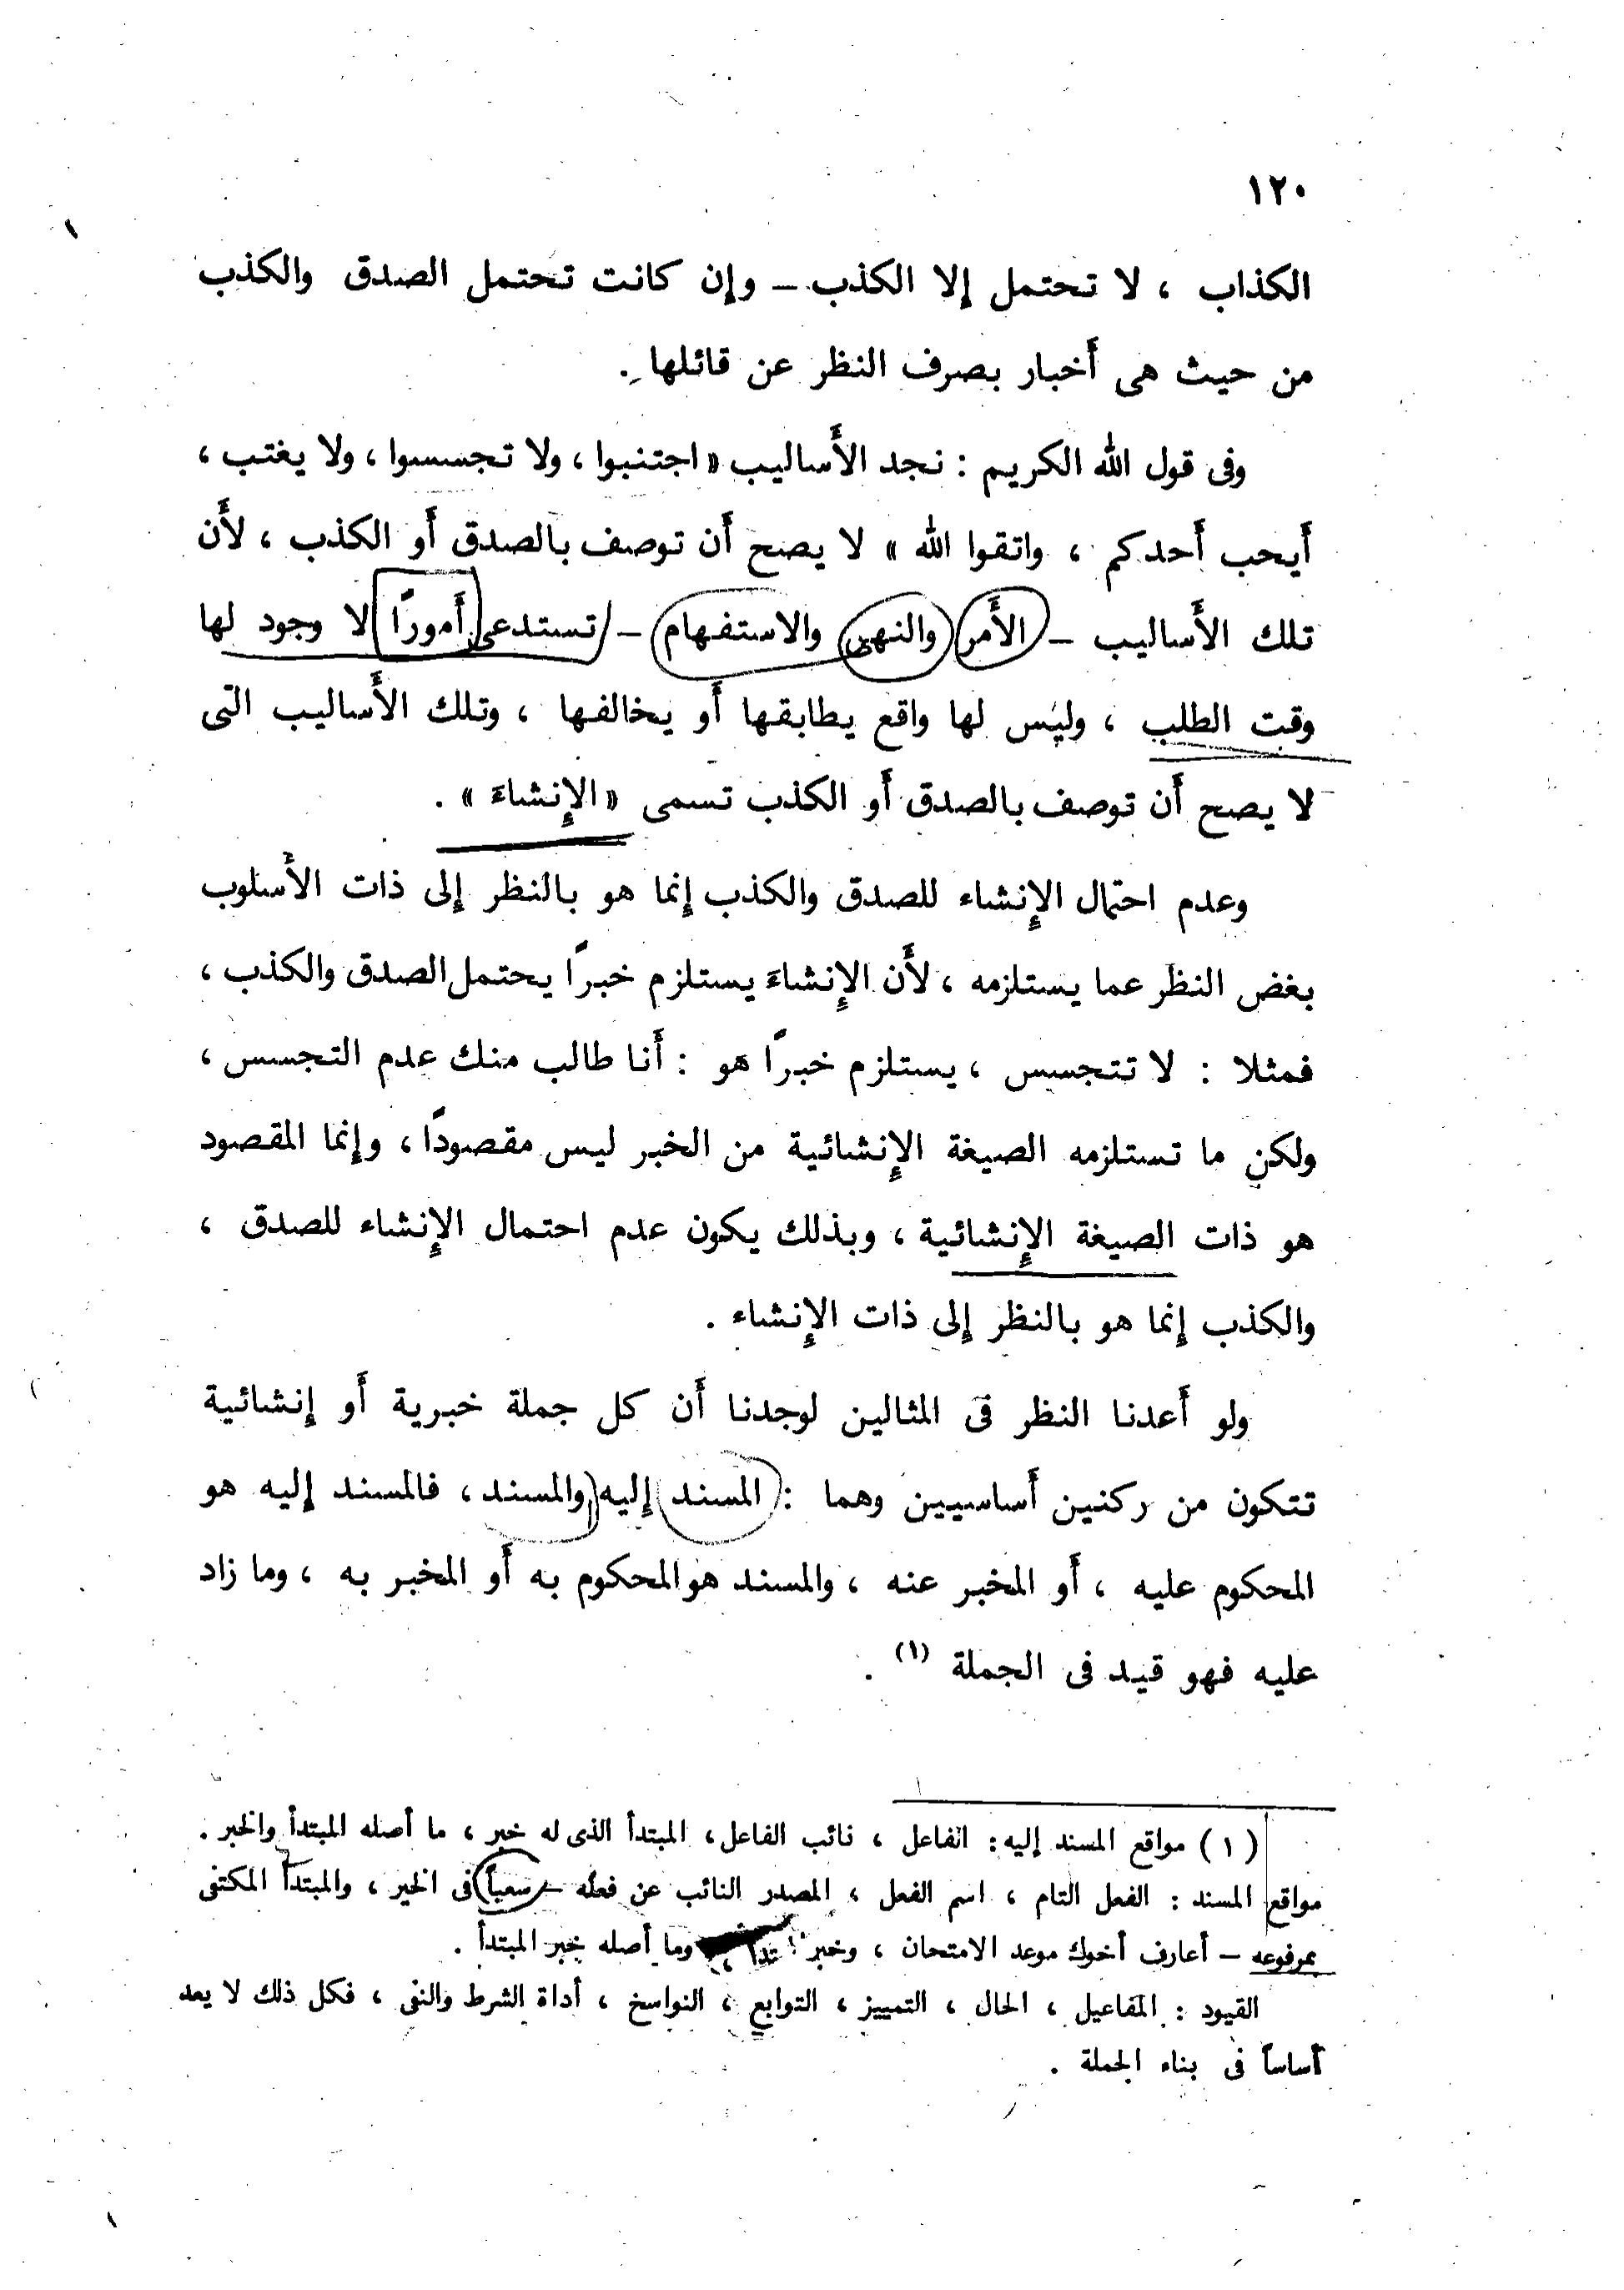 ١٢٠
الكذاب ، لا تحتمل إلا الكذب – وإن كانت تحتمل الصدق والكذب
من حيث هى أخبار بصرف النظر عن قائلها .
وفى قول الله الكريم : نجد الأساليب « اجتنبوا ، ولا تجسسوا ، ولا يغتب ،
أيحب أحدكم ، واتقوا الله » لا يصح أن توصف بالصدق أو الكذب ، لأن
تلك الأساليب – الأمر والنهى والاستفهام – تستدعى أمورًا لا وجود لها
وقت الطلب ، وليس لها واقع يطابقها أو يخالفها ، وتلك الأساليب التى
لا يصح أن توصف بالصدق أو الكذب تسمى « الإنشاءَ » .
وعدم احتمال الإنشاء للصدق والكذب إنما هو بالنظر إلى ذات الأسلوب
بغض النظر عما يستلزمه ، لأن الإنشاءَ يستلزم خبرًا يحتمل الصدق والكذب ،
فمثلا : لا تتجسس ، يستلزم خبرًا هو : أنا طالب منك عدم التجسس ،
ولكن ما تستلزمه الصيغة الإنشائية من الخبر ليس مقصودًا ، وإنما المقصود
هو ذات الصيغة الإنشائية ، وبذلك يكون عدم احتمال الإنشاء للصدق ،
والكذب إنما هو بالنظر إلى ذات الإنشاء .
ولو أعدنا النظر فى المثالين لوجدنا أن كل جملة خبرية أو إنشائية
تتكون من ركنين أساسيين وهما : المسند إليه والمسند ، فالمسند إليه هو
المحكوم عليه ، أو المخبر عنه ، والمسند هو المحكوم به أو المخبر به ، وما زاد
عليه فهو قيد فى الجملة (١) .
(١) مواقع المسند إليه : الفاعل ، نائب الفاعل ، المبتدأ الذى له خبر ، ما أصله المبتدأ والخبر .
مواقع المسند : الفعل التام ، اسم الفعل ، المصدر النائب عن فعله – سعياً فى الخير ، والمبتدأ المكتفى
بمرفوعه – أعارف أخوك موعد الامتحان ، وخبر وما أصله خبر المبتدأ .
القيود : المفاعيل ، الحال ، التمييز ، التوابع ، النواسخ ، أداة الشرط والنفى ، فكل ذلك لا يعد
أساساً فى بناء الجملة .